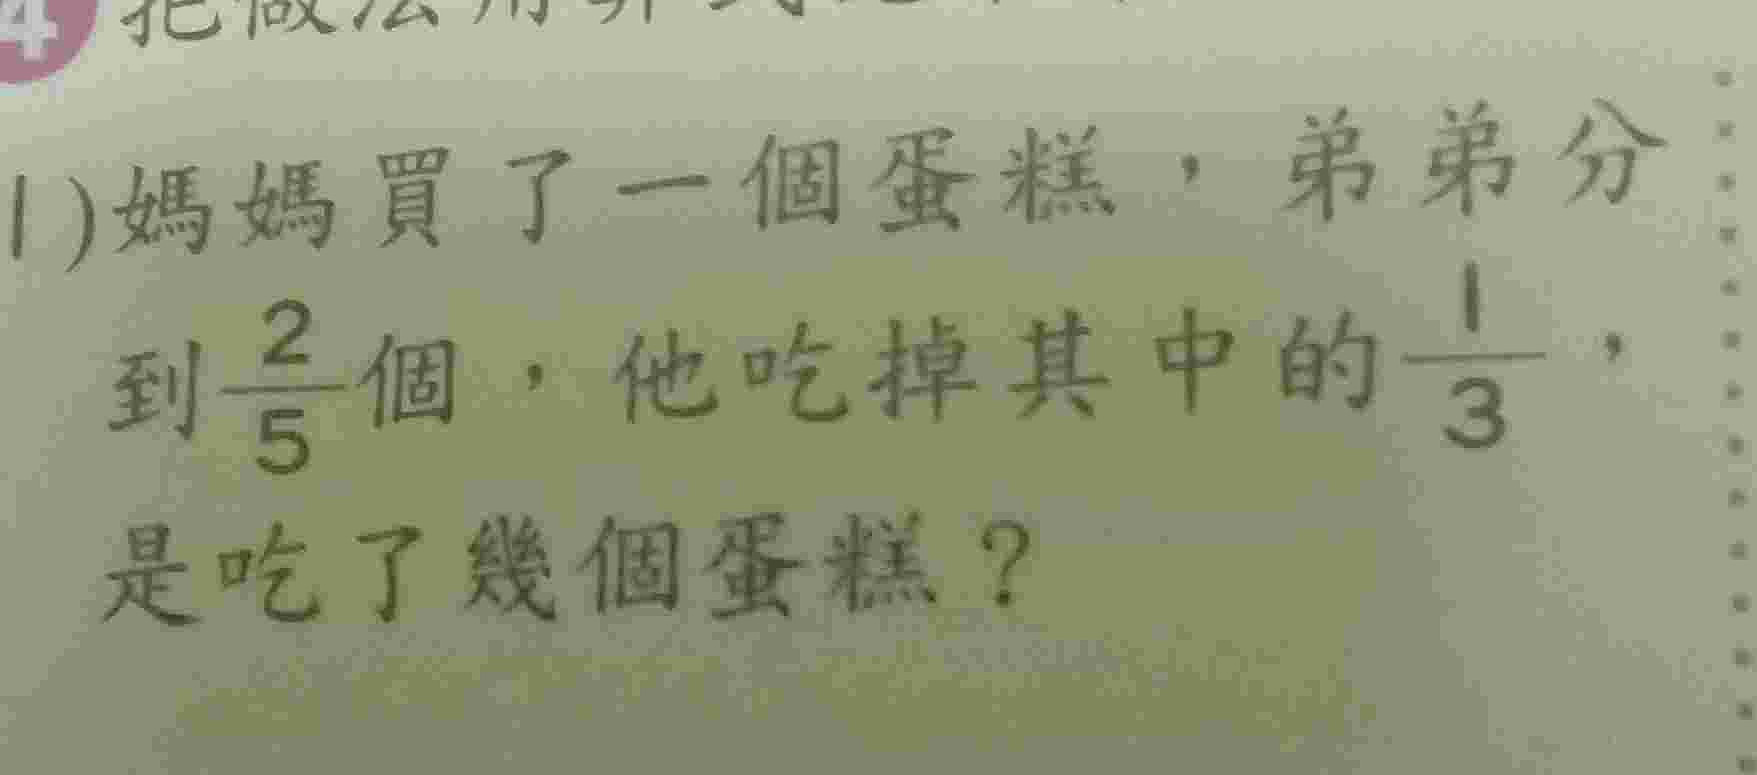 4 把做法用算式記下來
1)媽媽買了一個蛋糕，弟弟分
到2/5個，他吃掉其中的1/3，
是吃了幾個蛋糕？